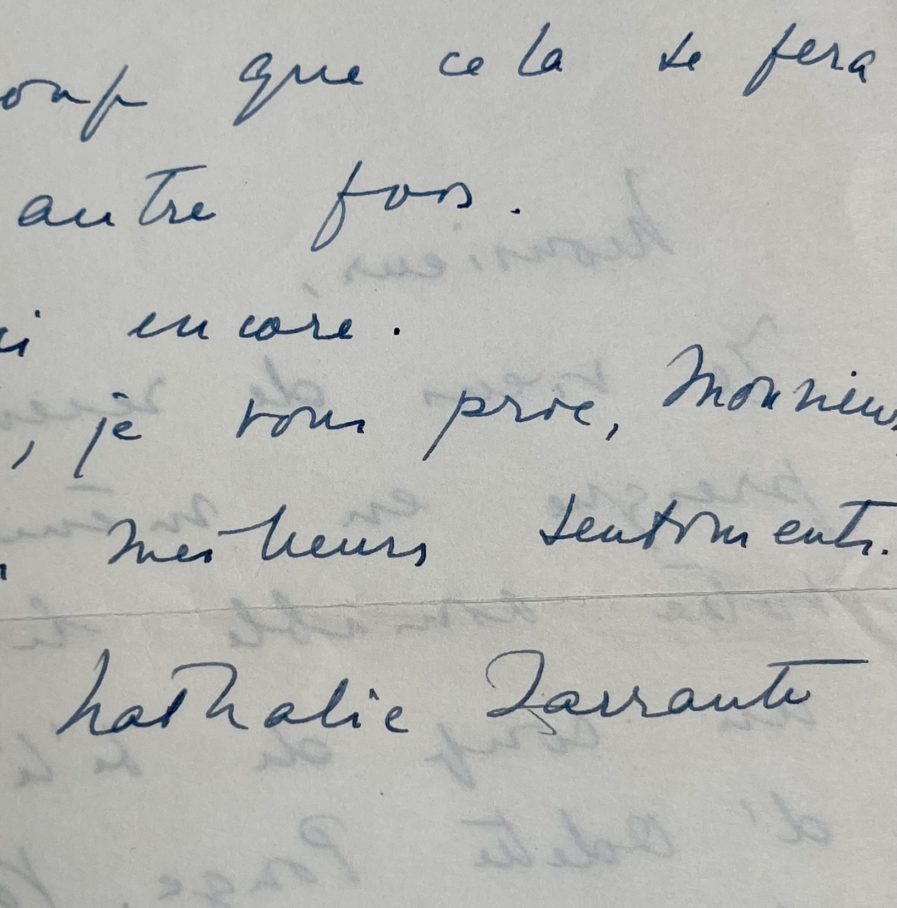 oup que cela se fera
autre fois.
ci encore.
, je vous prie, Monsieur,
meilleurs sentiments.
Nathalie Sarraute